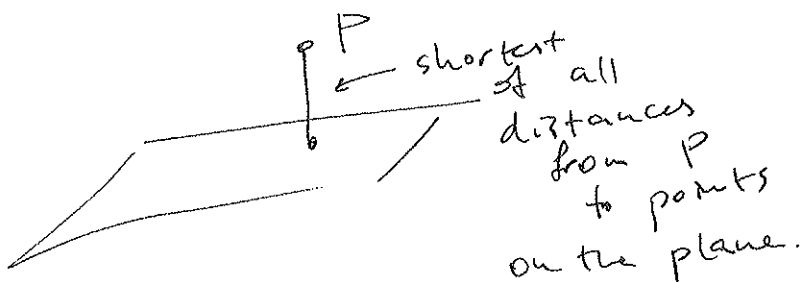 P
shortest
of all
distances
from P
to points
on the plane.